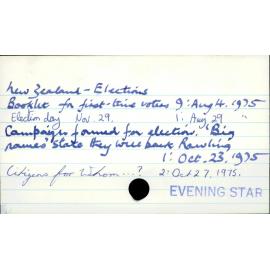 New Zealand - Elections
Booklet for first-time voters 9: Aug 4. 1975
Election day Nov. 29. 1: Aug 29 "
Campaign formed for election. 'Big
names' state they will back Rowling
1: Oct. 23, 1975
Citizens for Whom...? 2: Oct 27, 1975.
EVENING STAR